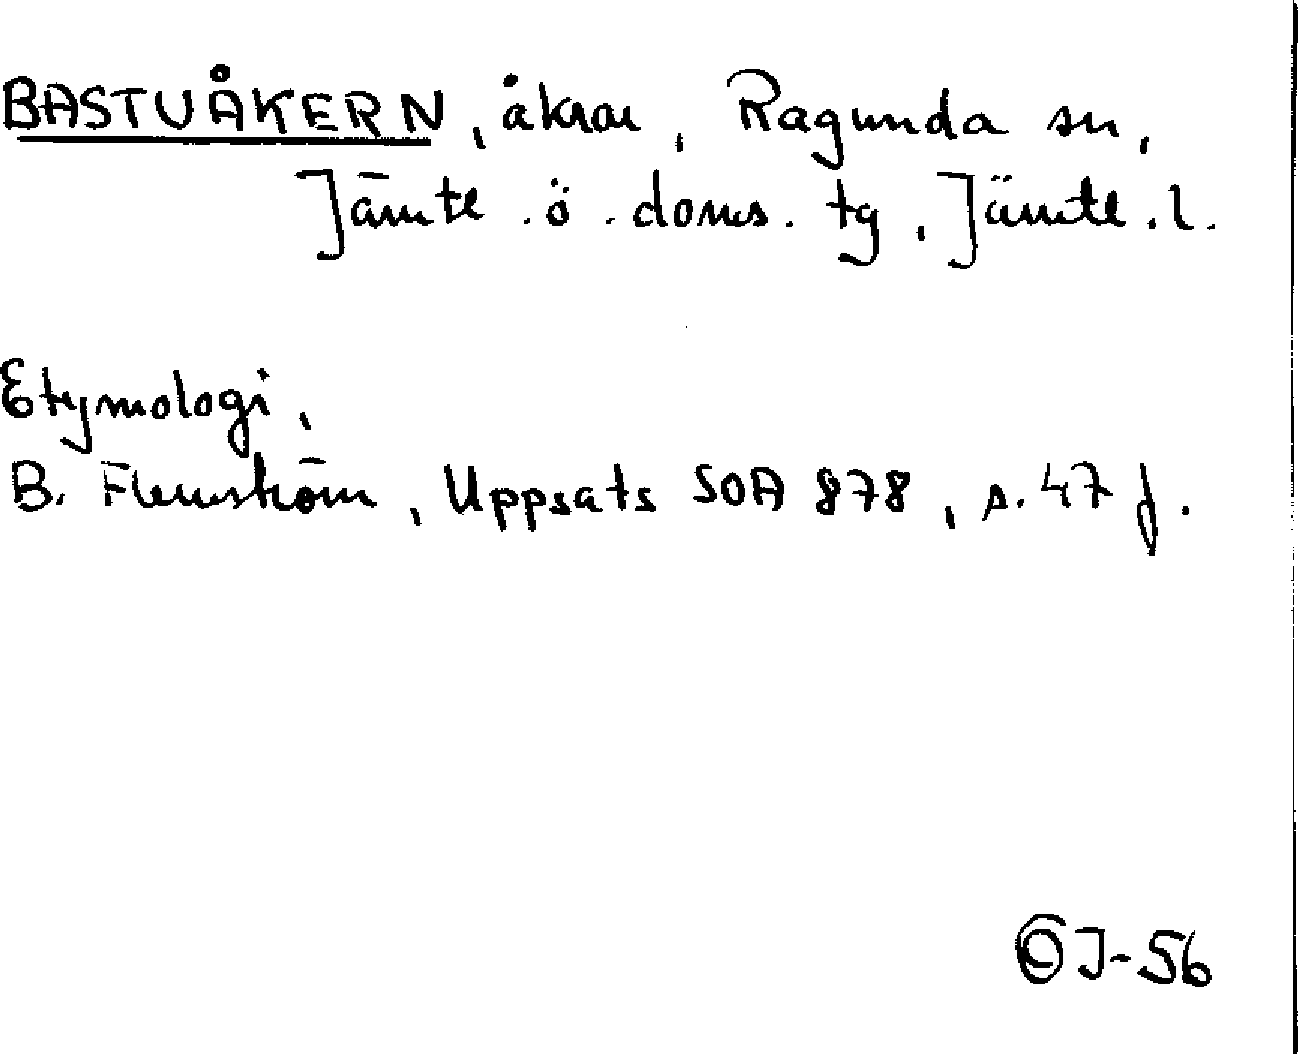 BASTUÅKERN, åkrar, Ragunda sn,
Jämtl. ö. doms. tg, Jämtl. l.
Etymologi,
B. Flemström, Uppsats SOA 878, s. 47 f.
J-56